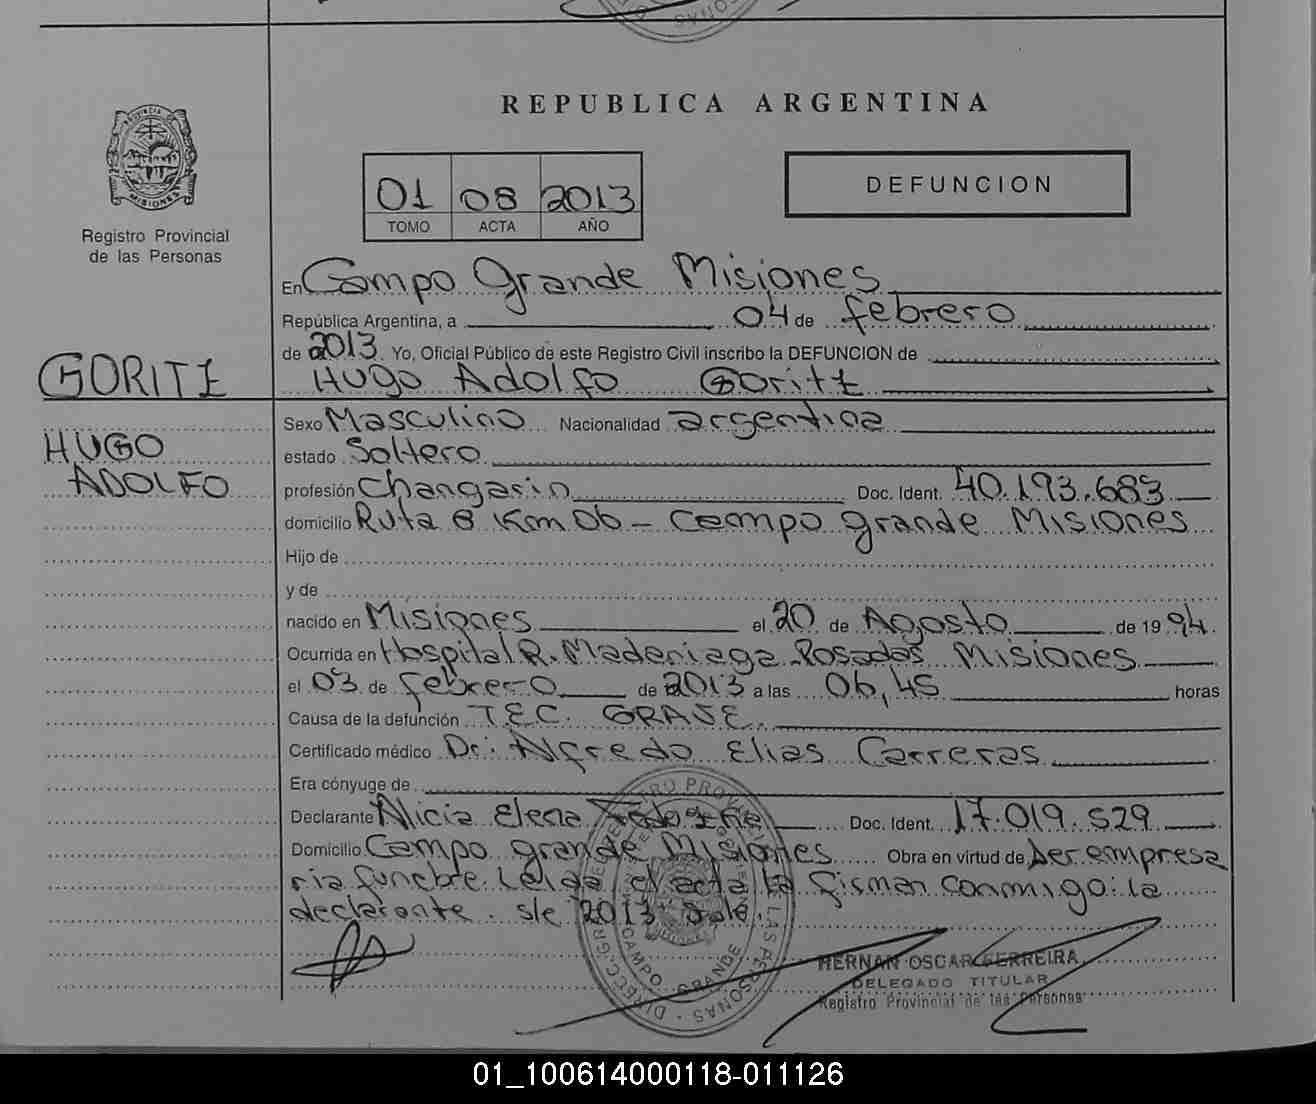 REPUBLICA ARGENTINA
PROVINCIA
MISIONES
Registro Provincial
de las Personas
01 08 2013
TOMO ACTA AÑO
DEFUNCION
En Campo Grande Misiones
República Argentina, a 04 de febrero
de 2013. Yo, Oficial Público de este Registro Civil inscribo la DEFUNCION de
GORITZ
Hugo Adolfo Goritz
Sexo Masculino Nacionalidad argentina
HUGO
ADOLFO
estado Soltero
profesión Changarin Doc. Ident. 40.193.683
domicilio Ruta 8 Km 06 - Campo grande Misiones
Hijo de
y de
nacido en Misiones el 20 de Agosto de 1994.
Ocurrida en Hospital R. Madariaga Posadas Misiones
el 03 de febrero de 2013 a las 06,45 horas
Causa de la defunción T.E.C. GRAVE.
Certificado médico Dr: Alfredo Elias Carreras
Era cónyuge de
Declarante Alicia Elena Doc. Ident. 17.019.529
Domicilio Campo grande Misiones Obra en virtud de ser empresa
ria funebre. Leida el acta la firman conmigo: la
declarante. s/e 2013 Vale.
CAMPO GRANDE
HERNAN OSCAR FERREIRA
DELEGADO TITULAR
Registro Provincial de las Personas
01_100614000118-011126